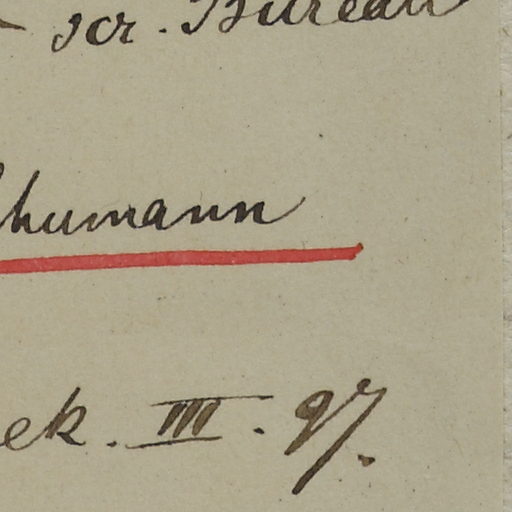 scr. Bureau
chumann
ek. III. 97.